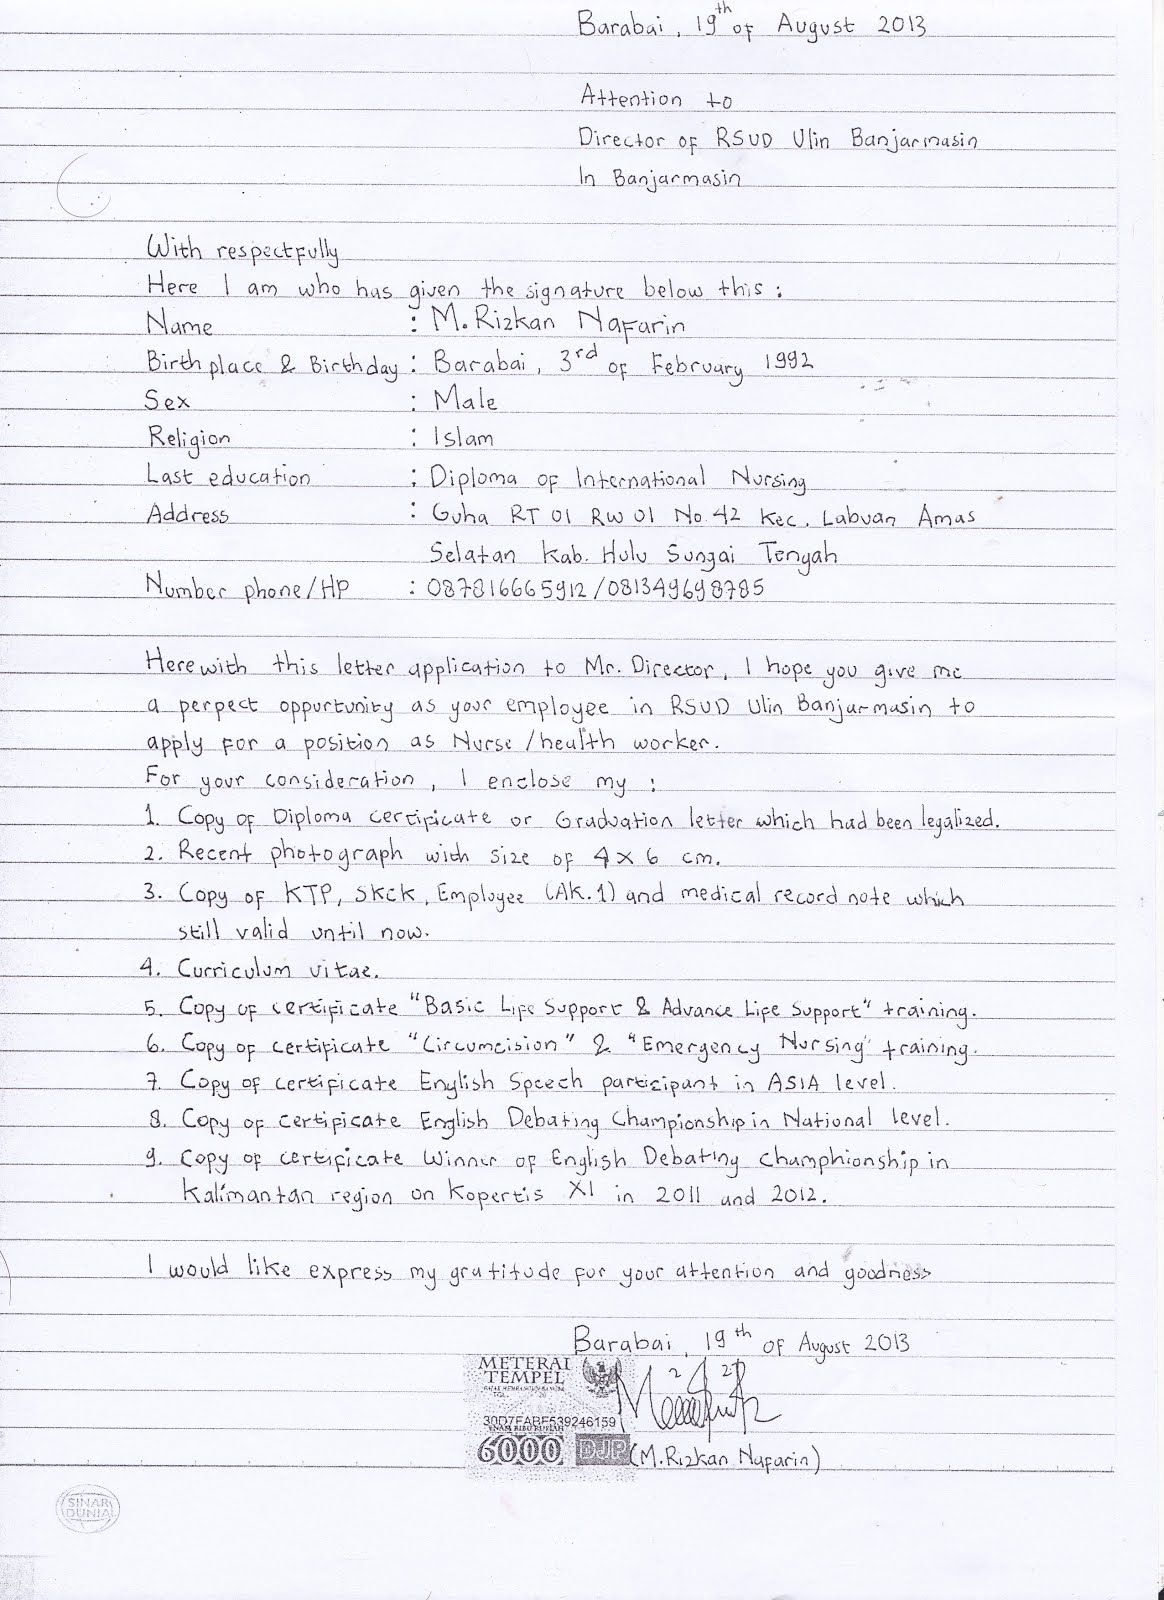 Barabai, 19th of August 2013
Attention to
Director of RSUD Ulin Banjarmasin
In Banjarmasin
With respectfully
Here I am who has given the signature below this :
Name : M. Rizkan Nafarin
Birth place & Birthday : Barabai, 3rd of February 1992
Sex : Male
Religion : Islam
Last education : Diploma of International Nursing
Address : Guha RT 01 RW 01 No. 42 Kec. Labuan Amas
Selatan Kab. Hulu Sungai Tengah
Number phone/HP : 087816665912 / 081349698785
Herewith this letter application to Mr. Director, I hope you give me
a perpect oppurtunity as your employee in RSUD Ulin Banjarmasin to
apply for a position as Nurse / health worker.
For your consideration, I enclose my :
1. Copy of Diploma certificate or Graduation letter which had been legalized.
2. Recent photograph with size of 4 x 6 cm.
3. Copy of KTP, SKCK, Employee (AK.1) and medical record note which
still valid until now.
4. Curriculum vitae.
5. Copy of certificate "Basic Life Support & Advance Life Support" training.
6. Copy of certificate "Circumcision" & "Emergency Nursing" training.
7. Copy of certificate English Speech participant in ASIA level.
8. Copy of certificate English Debating Championship in National level.
9. Copy of certificate Winner of English Debating champhionship in
Kalimantan region on Kopertis XI in 2011 and 2012.
I would like express my gratitude for your attention and goodness
Barabai, 19th of August 2013
METERAI
TEMPEL
30D7FABF539246159
ENAM RIBU RUPIAH
6000 DJP
(M. Rizkan Nafarin)
SINAR
DUNIA